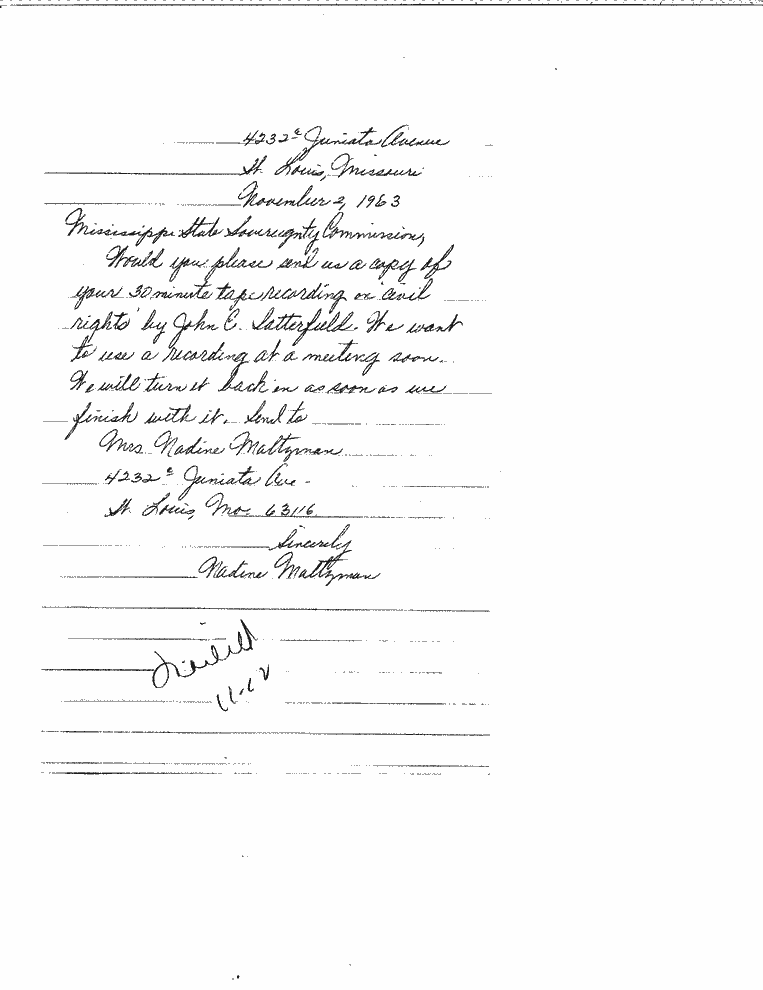 4232ᵃ Juniata Avenue
St. Louis, Missouri
November 2, 1963
Mississippi State Sovereignty Commission,
Would you please send us a copy of
your 30 minute tape recording on 'civil
rights' by John C. Satterfield. We want
to use a recording at a meeting soon.
We will turn it back in as soon as we
finish with it. Send to
Mrs. Nadine Maltzman
4232ᵃ Juniata Ave.
St. Louis, Mo. 63116
Sincerely
Nadine Maltzman
Mailed
11-12